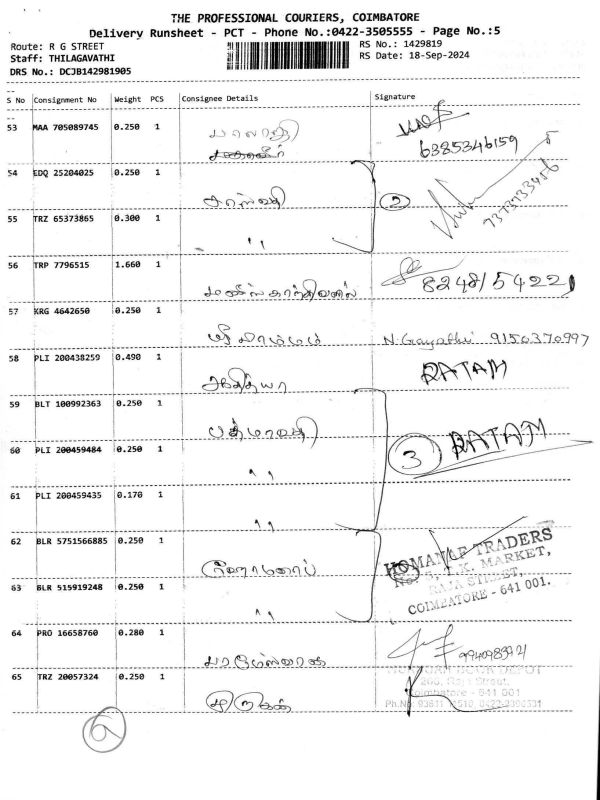 THE PROFESSIONAL COURIERS, COIMBATORE
Delivery Runsheet - PCT - Phone No.:0422-3505555 - Page No.:5
Route: R G STREET
RS No.: 1429819
Staff: THILAGAVATHI
RS Date: 18-Sep-2024
DRS No.: DCJB142981905
S No Consignment No Weight PCS Consignee Details Signature
53 MAA 705089745 0.250 1
பாலாஜி
6385346159
54 EDQ 25204025 0.250 1
2
7373733456
55 TRZ 65373865 0.300 1
" "
56 TRP 7796515 1.660 1
57 KRG 4642650 0.250 1
N. Gayathri 9150370997
58 PLI 200438259 0.490 1
RATAM
59 BLT 100992363 0.250 1
பத்மாவதி
60 PLI 200459484 0.250 1
3 RATAM
" "
61 PLI 200459435 0.170 1
" "
62 BLR 5751566885 0.250 1
HOMANLE TRADERS
T.K. MARKET,
63 BLR 515919248 0.250 1
RAJA STREET,
COIMBATORE - 641 001.
" "
64 PRO 16658760 0.280 1
65 TRZ 20057324 0.250 1
DOOR DEPOT
Coimbatore - 641 001
முருகன்
6